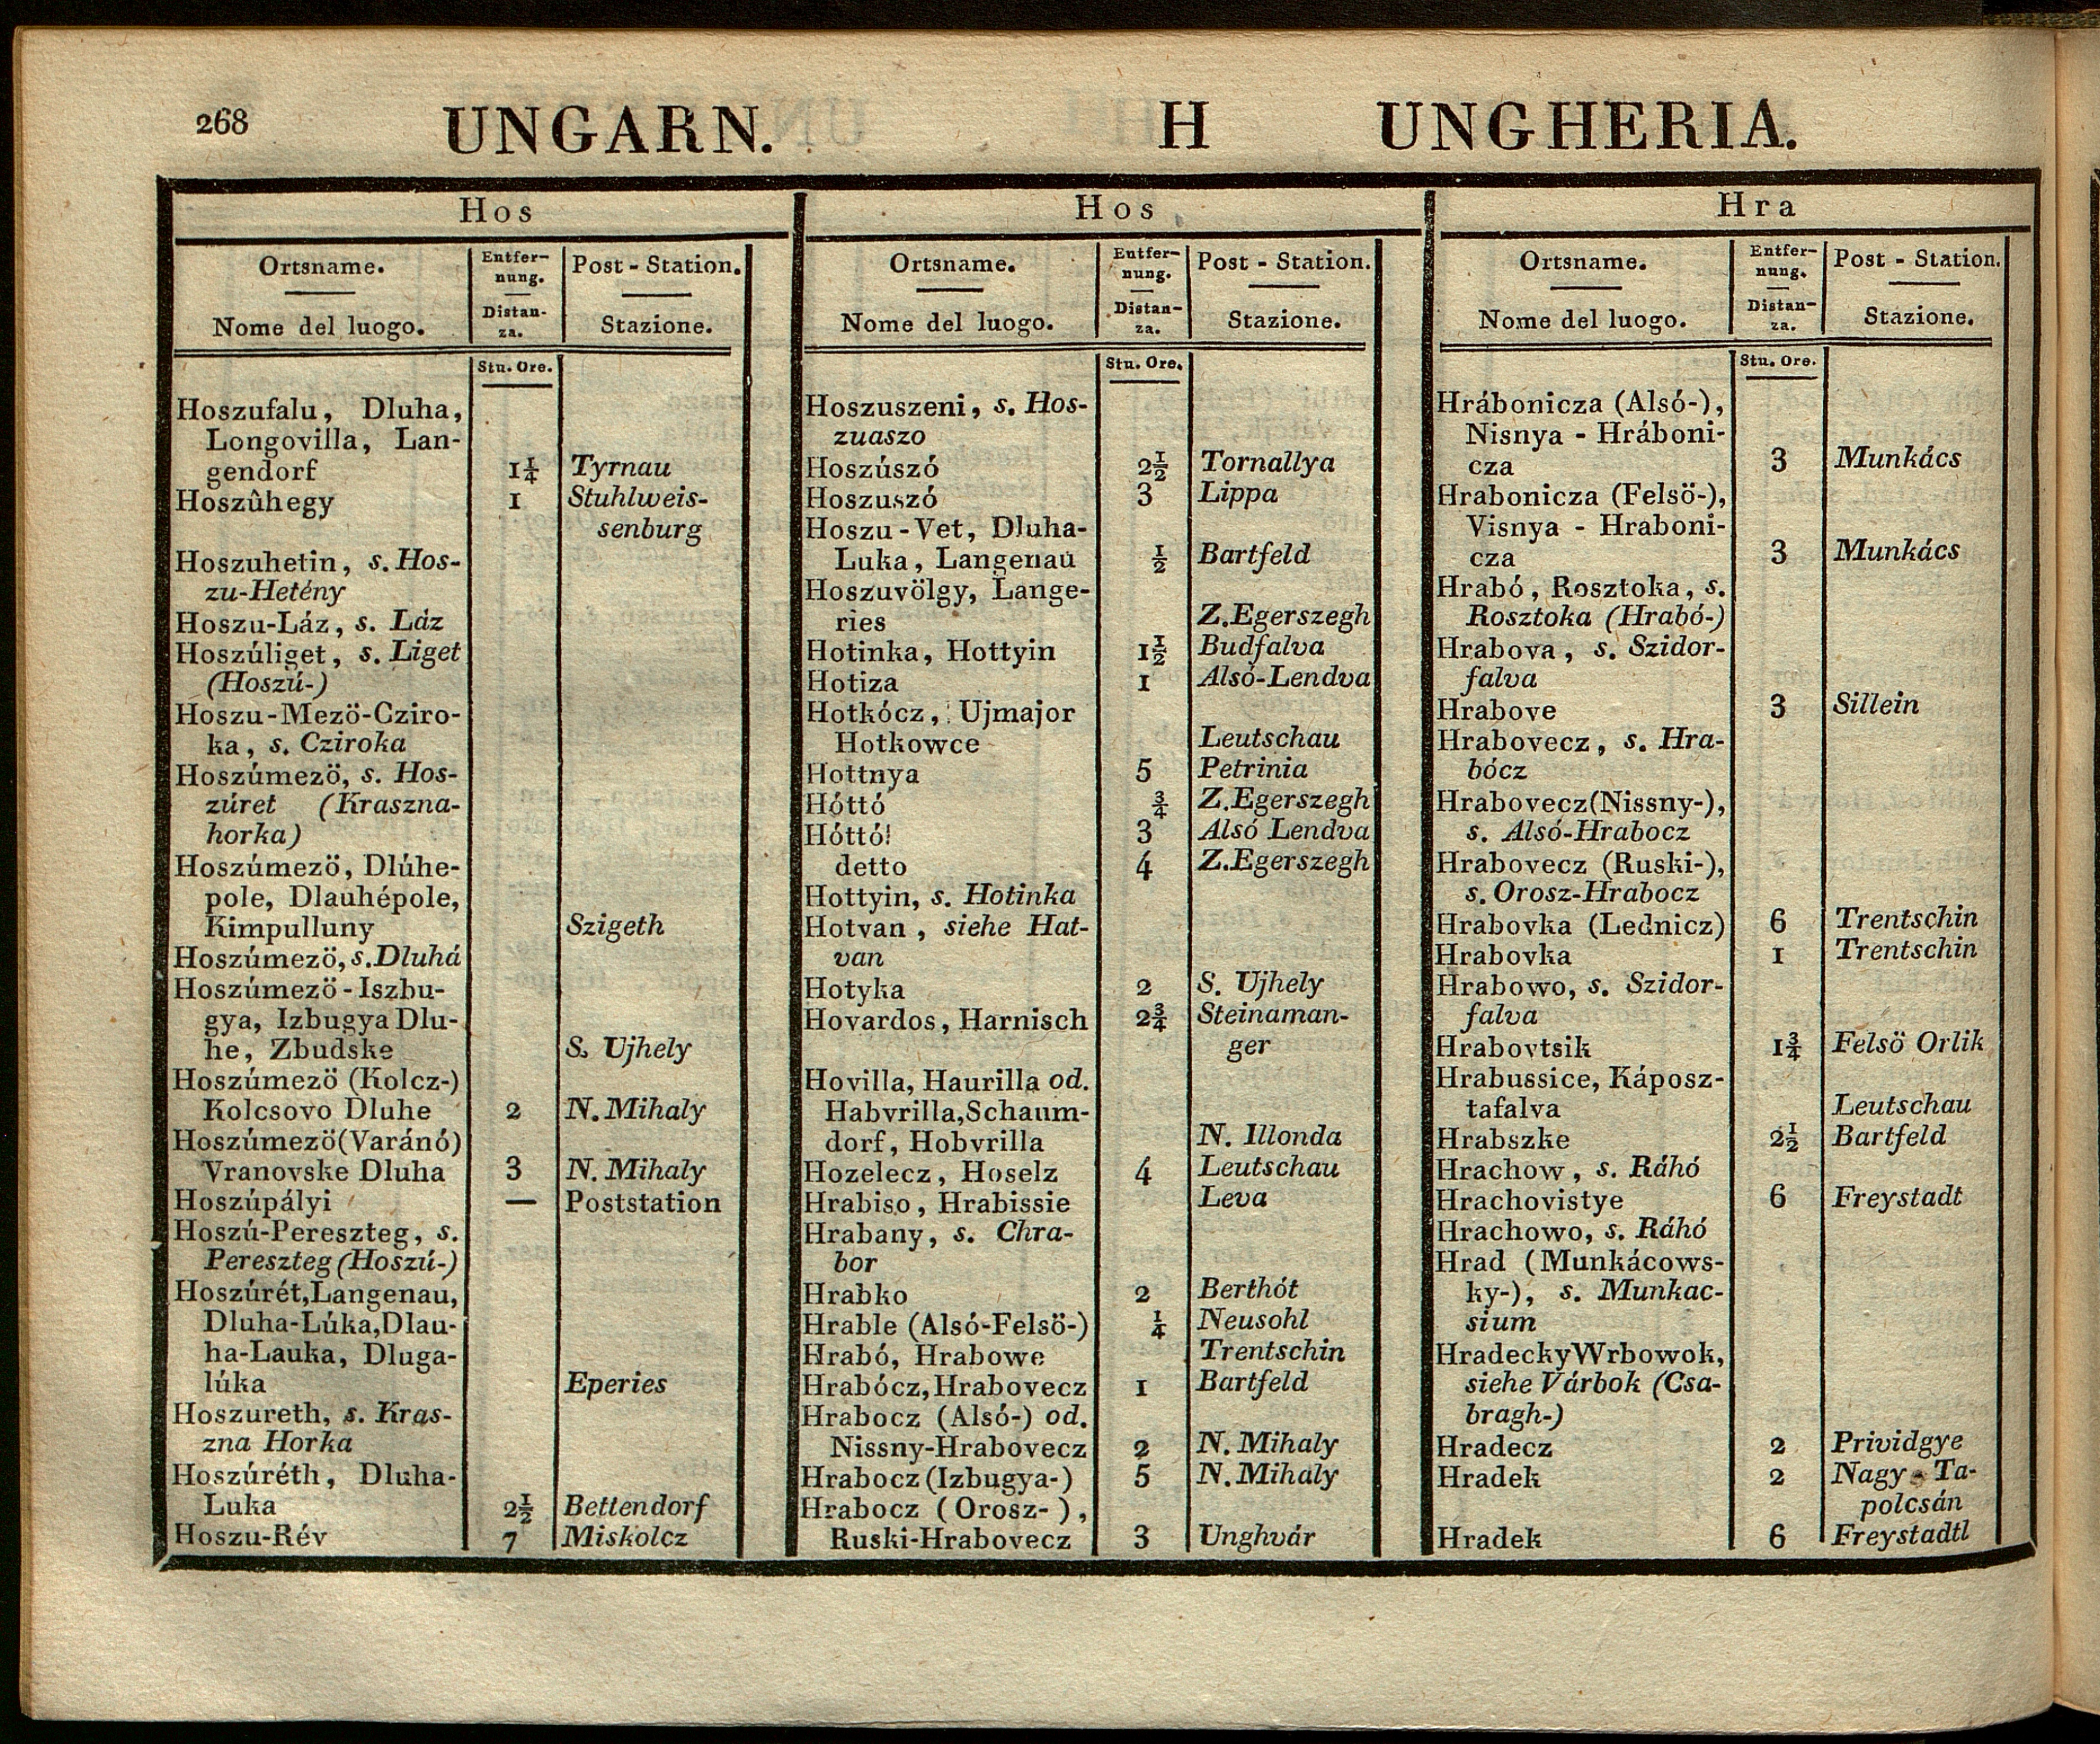 268 UNGARN. H UNGHERIA.
Hos
Ortsname. Entfer- Post - Station.
nung.
Nome del luogo. Distan- Stazione.
za.
Stu. Ore.
Hoszufalu, Dluha,
Longovilla, Lan-
gendorf 1¼ Tyrnau
Hoszûhegy 1 Stuhlweis-
senburg
Hoszuhetin, s. Hos-
zu-Hetény
Hoszu-Láz, s. Láz
Hoszúliget, s. Liget
(Hoszú-)
Hoszu-Mezö-Cziro-
ka, s. Cziroka
Hoszúmezö, s. Hos-
zúret (Kraszna-
horka)
Hoszúmezö, Dlúhe-
pole, Dlauhépole,
Kimpulluny Szigeth
Hoszúmezö, s. Dluhá
Hoszúmezö-Iszbu-
gya, Izbugya Dlu-
he, Zbudske S. Ujhely
Hoszúmezö (Kolcz-)
Kolcsovo Dluhe 2 N. Mihaly
Hoszúmezö (Varánó)
Vranovske Dluha 3 N. Mihaly
Hoszúpályi — Poststation
Hoszú-Pereszteg, s.
Pereszteg (Hoszú-)
Hoszúrét, Langenau,
Dluha-Lúka, Dlau-
ha-Lauka, Dluga-
lúka Eperies
Hoszureth, s. Kras-
zna Horka
Hoszúréth, Dluha-
Luka 2½ Bettendorf
Hoszu-Rév 7 Miskolcz
Hos
Ortsname. Entfer- Post - Station.
nung.
Nome del luogo. Distan- Stazione.
za.
Stu. Ore.
Hoszuszeni, s. Hos-
zuaszo
Hoszúszó 2½ Tornallya
Hoszuszó 3 Lippa
Hoszu-Vet, Dluha-
Luka, Langenau ½ Bartfeld
Hoszuvölgy, Lange-
ries Z. Egerszegh
Hotinka, Hottyin 1½ Budfalva
Hotiza 1 Alsó-Lendva
Hotkócz, Ujmajor
Hotkowce Leutschau
Hottnya 5 Petrinia
Hóttó ¾ Z. Egerszegh
Hóttó! 3 Alsó Lendva
detto 4 Z. Egerszegh
Hottyin, s. Hotinka
Hotvan, siehe Hat-
van
Hotyka 2 S. Ujhely
Hovardos, Harnisch 2¾ Steinaman-
ger
Hovilla, Haurilla od.
Habvrilla, Schaum-
dorf, Hobvrilla N. Illonda
Hozelecz, Hoselz 4 Leutschau
Hrabiso, Hrabissie Leva
Hrabany, s. Chra-
bor
Hrabko 2 Berthót
Hrable (Alsó-Felsö-) ¼ Neusohl
Hrabó, Hrabowe Trentschin
Hrabócz, Hrabovecz 1 Bartfeld
Hrabocz (Alsó-) od.
Nissny-Hrabovecz 2 N. Mihaly
Hrabocz (Izbugya-) 5 N. Mihaly
Hrabocz (Orosz-),
Ruski-Hrabovecz 3 Unghvár
Hra
Ortsname. Entfer- Post - Station.
nung.
Nome del luogo. Distan- Stazione.
za.
Stu. Ore.
Hrábonicza (Alsó-),
Nisnya - Hráboni-
cza 3 Munkács
Hrabonicza (Felsö-),
Visnya - Hraboni-
cza 3 Munkács
Hrabó, Rosztoka, s.
Rosztoka (Hrabó-)
Hrabova, s. Szidor-
falva
Hrabove 3 Sillein
Hrabovecz, s. Hra-
bócz
Hrabovecz (Nissny-),
s. Alsó-Hrabocz
Hrabovecz (Ruski-),
s. Orosz-Hrabocz
Hrabovka (Lednicz) 6 Trentschin
Hrabovka 1 Trentschin
Hrabowo, s. Szidor-
falva
Hrabovtsik 1¾ Felsö Orlik
Hrabussice, Káposz-
tafalva Leutschau
Hrabszke 2½ Bartfeld
Hrachow, s. Ráhó
Hrachovistye 6 Freystadt
Hrachowo, s. Ráhó
Hrad (Munkácows-
ky-), s. Munkac-
sium
Hradecky Wrbowok,
siehe Várbok (Csa-
bragh-)
Hradecz 2 Prividgye
Hradek 2 Nagy-Ta-
polcsán
Hradek 6 Freystadtl